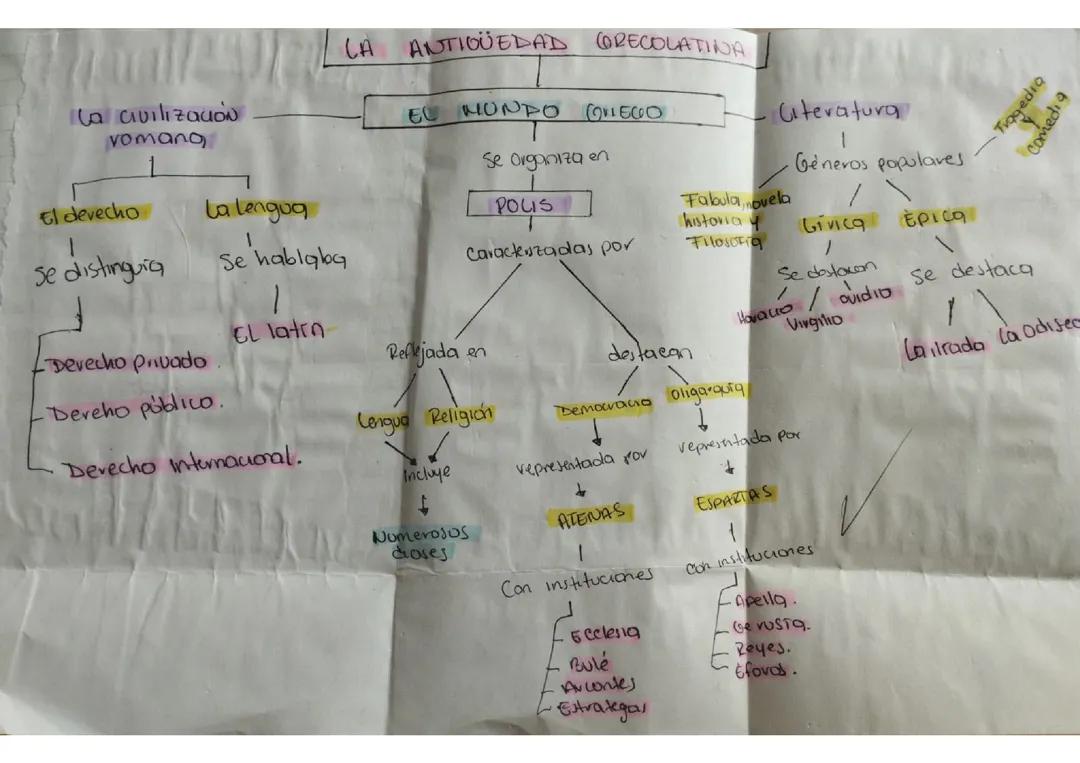 LA ANTIGÜEDAD GRECOLATINA
La civilización
romana
EL MUNDO GRIEGO
Literatura
Tragedia
y
comedia
Se organiza en
Géneros populares
POLIS
El derecho
La lengua
Fabula, novela
historia y
Filosofía
Lírica
Épica
Se distinguía
Se hablaba
Caracterizadas por
Se destacan
Se destaca
Horacio
Virgilio
Ovidio
El latín
La ilrada
La Odisea
Derecho privado.
Dereho público.
Derecho internacional.
Reflejada en
destacan
Lengua
Religión
Democracia
Oligarquía
incluye
representada por
representada por
Numerosos
dioses
ATENAS
ESPARTAS
Con instituciones
Con instituciones
Ecclesia
Bulé
Arcontes
Estrategas
Apella.
Gerusia.
Reyes.
Éforos.